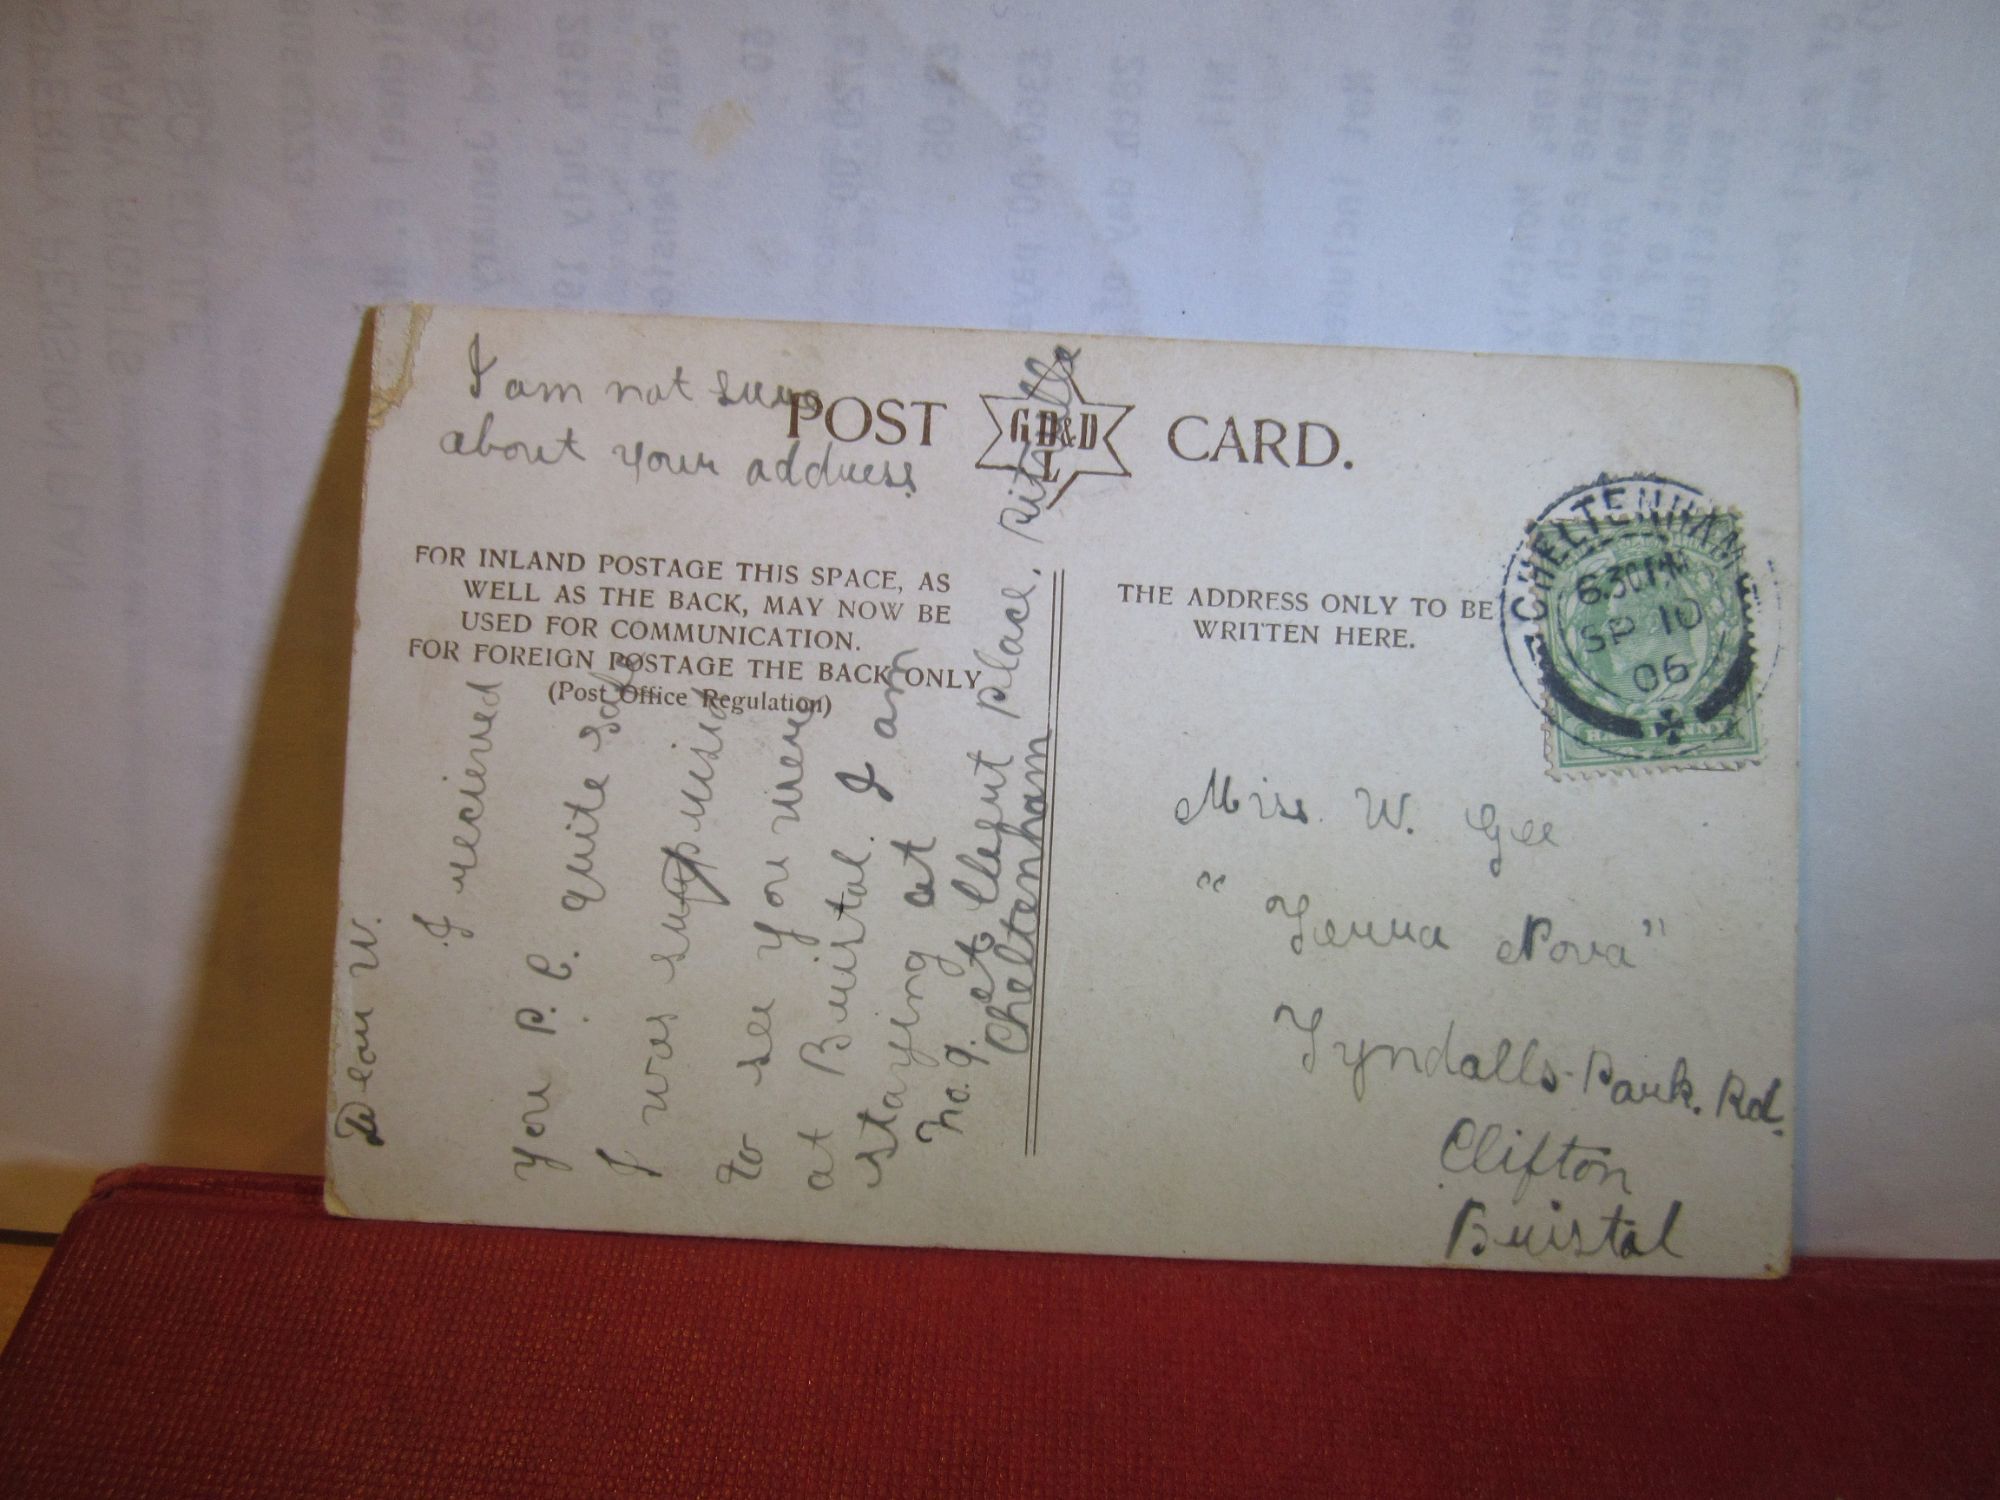 I am not sure
about your address
POST CARD.
G D & D
L
FOR INLAND POSTAGE THIS SPACE, AS
WELL AS THE BACK, MAY NOW BE
USED FOR COMMUNICATION.
FOR FOREIGN POSTAGE THE BACK ONLY
(Post Office Regulation)
THE ADDRESS ONLY TO BE
WRITTEN HERE.
CHELTENHAM
6.30 PM
SP 10
06
HALFPENNY
Dear W.
I recieved
your P. C. quite safe
I was suprised
to see you were
at Bristol. I am
staying at
No. 9. place.
Cheltenham
Miss. W. Gee
"Terra Nova"
Tyndalls Park. Rd.
Clifton
Bristol
SPERITY PENSION PLAN
DINARY RIGHTS
SCHEDULE
23rd January
28th July
Pearl
50
28th day of
Nil
Not include